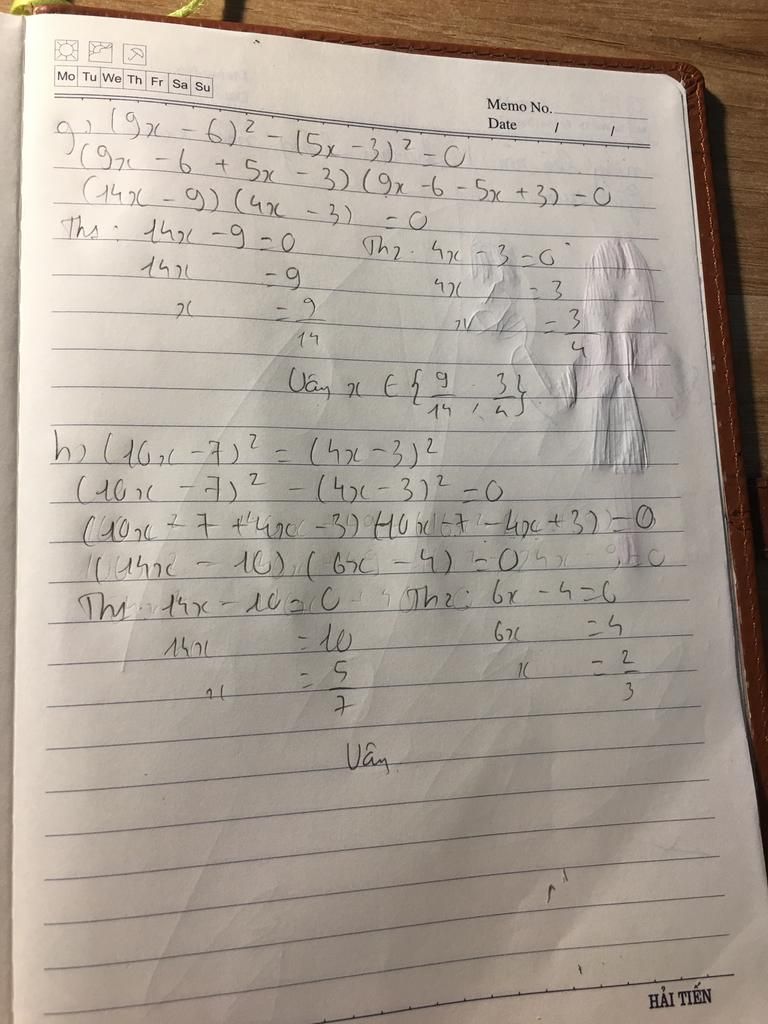 Mo Tu We Th Fr Sa Su
Memo No.
Date / /
g) (9x - 6)² - (5x - 3)² = 0
(9x - 6 + 5x - 3) (9x - 6 - 5x + 3) = 0
(14x - 9) (4x - 3) = 0
Th1: 14x - 9 = 0 Th2: 4x - 3 = 0
14x = 9 4x = 3
x = 9/14 x = 3/4
Vậy x ∈ {9/14 ; 3/4}
h) (10x - 7)² = (4x - 3)²
(10x - 7)² - (4x - 3)² = 0
(10x - 7 + 4x - 3) (10x - 7 - 4x + 3) = 0
(14x - 10) (6x - 4) = 0
Th1: 14x - 10 = 0 Th2: 6x - 4 = 0
14x = 10 6x = 4
x = 5/7 x = 2/3
Vậy
HẢI TIẾN